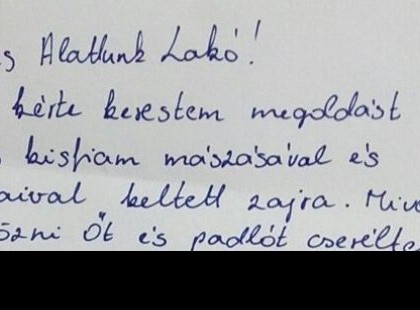 s Alattunk Lakó!
kérte kerestem megoldást
kisfiam mászásával és
aival keltett zajra. Mive
őzni Őt és padlót cserélte